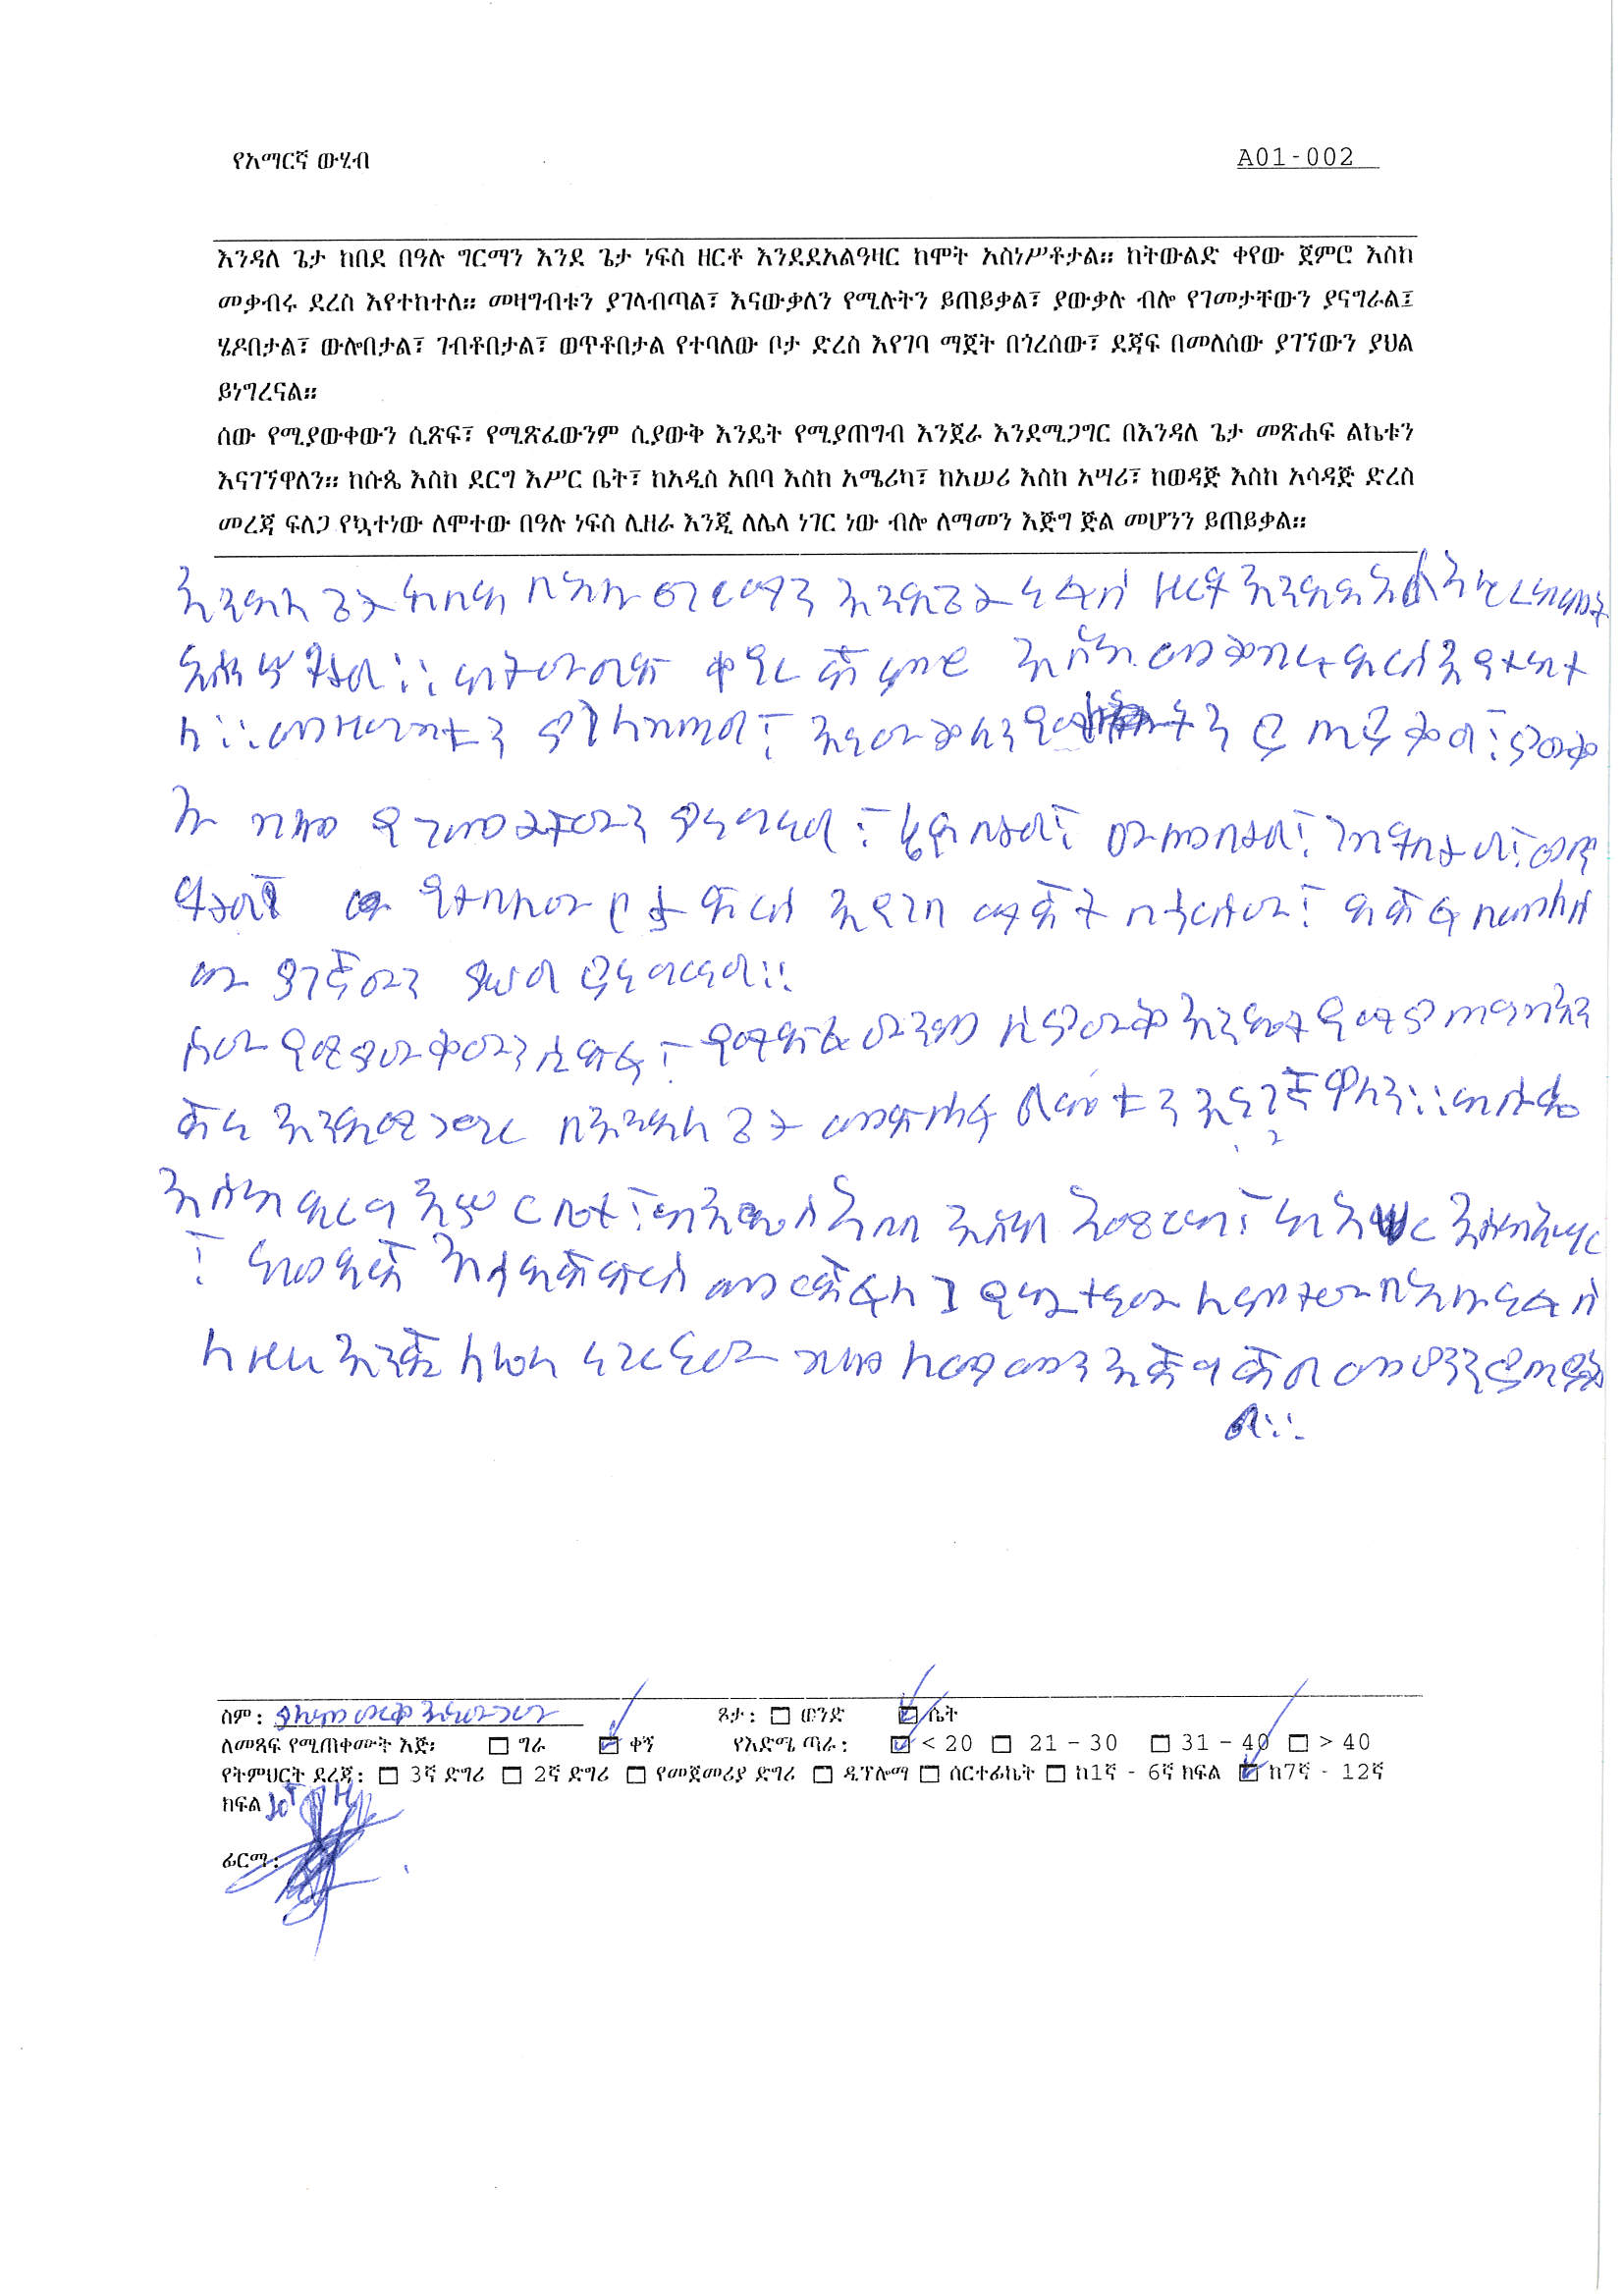 የአማርኛ ውሂብ
A01-002
እንዳለ ጌታ ከበደ በዓሉ ግርማን እንደ ጌታ ነፍስ ዘርቶ እንደደአልዓዛር ከሞት አስነሥቶታል። ከትውልድ ቀየው ጀምሮ እስከ
መቃብሩ ደረስ እየተከተለ። መዛግብቱን ያገላብጣል፣ እናውቃለን የሚሉትን ይጠይቃል፣ ያውቃሉ ብሎ የገመታቸውን ያናግራል፤
ሄዶበታል፣ ውሎበታል፣ ገብቶበታል፣ ወጥቶበታል የተባለው ቦታ ድረስ እየገባ ማጀት በጎረሰው፣ ደጃፍ በመለሰው ያገኘውን ያህል
ይነግረናል።
ሰው የሚያውቀውን ሲጽፍ፣ የሚጽፈውንም ሲያውቅ እንዴት የሚያጠግብ እንጀራ እንደሚጋግር በእንዳለ ጌታ መጽሐፍ ልኬቱን
እናገኘዋለን። ከሱጴ እስከ ደርግ እሥር ቤት፣ ከአዲስ አበባ እስከ አሜሪካ፣ ከአሠሪ እስከ አሣሪ፣ ከወዳጅ እስከ አሳዳጅ ድረስ
መረጃ ፍለጋ የኳተነው ለሞተው በዓሉ ነፍስ ሊዘራ እንጂ ለሌላ ነገር ነው ብሎ ለማመን እጅግ ጅል መሆንን ይጠይቃል።
እንዳለ ጌታ ከበደ በዓሉ ግርማን እንደ ጌታ ነፍስ ዘርቶ
አስነሥቶታል። ከትውልድ ቀየረ ጀምሮ እስከ መቃብሩ ደረስ እየተከተ
ለ። መዛግብቱን ያገላብጣል፣ እናውቃለን ይጠይቃል፣ ያውቃ
ሉ ብሎ የገመታቸውን ያናግራል፣ ሄዶበታል፣ ውሎበታል፣ ገብቶበታል፣ ወጥ
ቶታል የተባለው ቦታ ድረስ እየገባ ማጀት በጎረሰው፣ ደጃፍ በመለሰ
ው ያገኘውን ያህል ይነግረናል።
ሰው የሚያውቀውን ሲጽፍ፣ የሚጽፈውንም ሲያውቅ እንዴት የሚያጠግብ እን
ጀራ እንደሚጋግር በእንዳለ ጌታ መጽሐፍ ልኬቱን እናገኘዋለን። ከሱጴ
እስከ ደርግ እሥር ቤት፣ ከአዲስ አበባ እስከ አሜሪካ፣ ከአሠሪ እስከ አሣሪ
፣ ከወዳጅ መረጃ ፍለጋ የኳተነው ለሞተው በዓሉ ነፍስ
ሊዘራ እንጂ ለሌላ ነገር ነው ብሎ ለማመን እጅግ ጅል መሆንን ይጠይቃ
ል።
ስም:
ጾታ: ወንድ ሴት
ለመጻፍ የሚጠቀሙት እጅ: ግራ ቀኝ የእድሜ ጣራ: < 20 21 - 30 31 - 40 > 40
የትምህርት ደረጃ: 3ኛ ድግሪ 2ኛ ድግሪ የመጀመሪያ ድግሪ ዲፕሎማ ሰርተፊኬት ከ1ኛ - 6ኛ ክፍል ከ7ኛ - 12ኛ
ክፍል 10TH
ፊርማ: